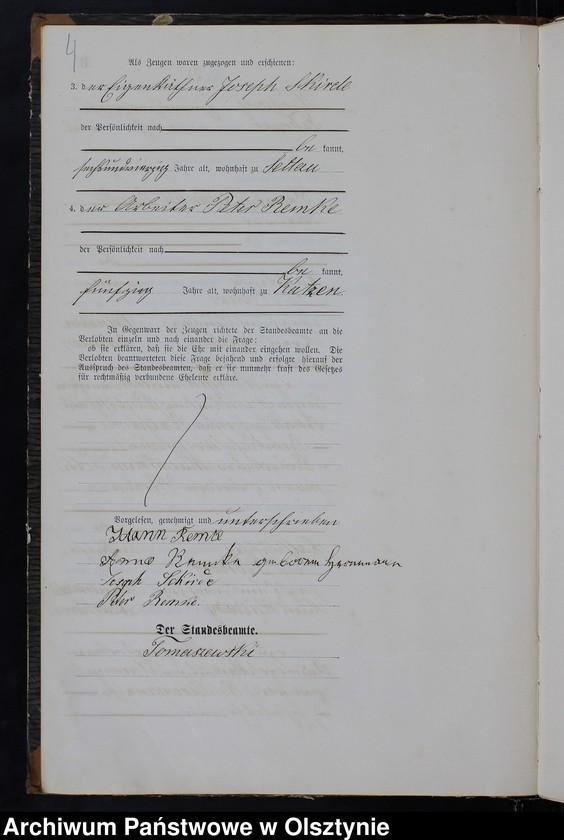 4
Als Zeugen waren zugezogen und erschienen:
3. der Eigenkäthner Joseph Schirde
der Persönlichkeit nach
be kannt,
sechsundvierzig Jahre alt, wohnhaft zu Settau
4. der Arbeiter Peter Remke
der Persönlichkeit nach
be kannt,
fünfzig Jahre alt, wohnhaft zu Katzen
In Gegenwart der Zeugen richtete der Standesbeamte an die
Verlobten einzeln und nach einander die Frage:
ob sie erklären, daß sie die Ehe mit einander eingehen wollen. Die
Verlobten beantworteten diese Frage bejahend und erfolgte hierauf der
Ausspruch des Standesbeamten, daß er sie nunmehr kraft des Gesetzes
für rechtmäßig verbundene Eheleute erkläre.
Vorgelesen, genehmigt und unterschrieben
Remke
Anna Remke geborene Herrmann
Joseph Schirde
Peter Remke.
Der Standesbeamte.
Tomaszewski
Archiwum Państwowe w Olsztynie